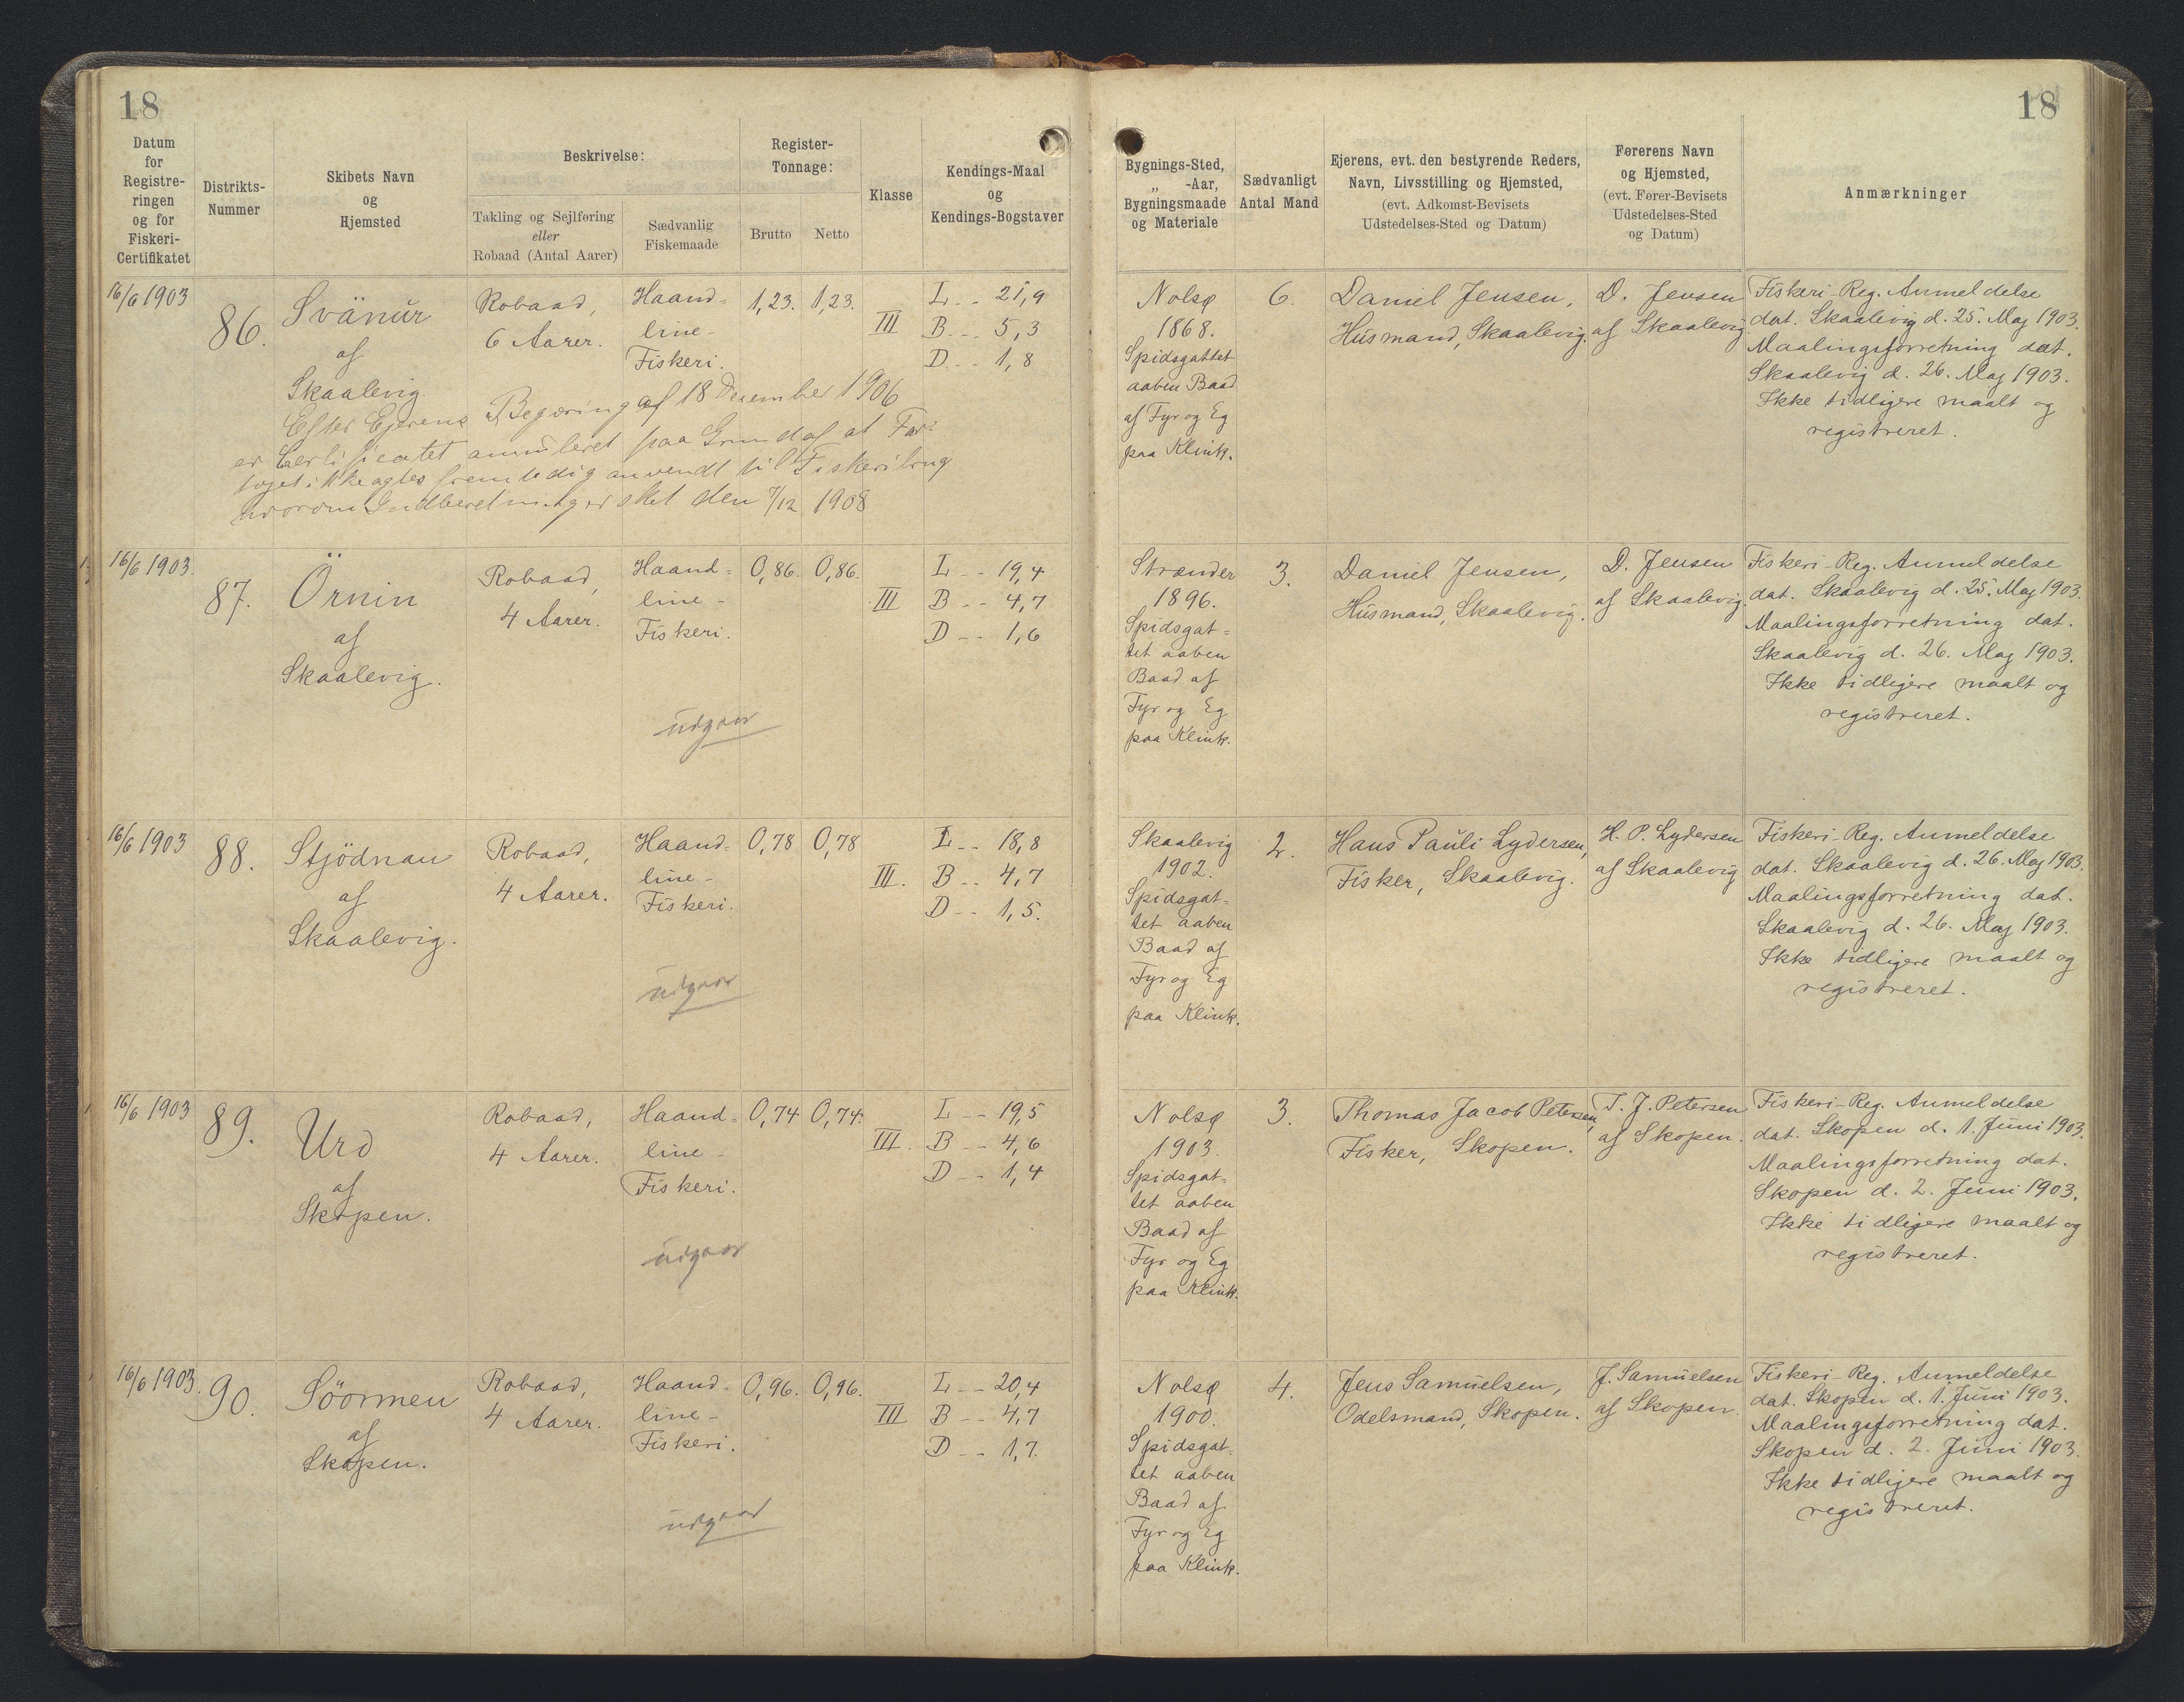 18
18
Datum
for
Registre-
ringen
og for
Fiskeri-
Certifikatet
Distrikts-
Nummer
Skibets Navn
og
Hjemsted
Beskrivelse:
Takling og Sejlføring
eller
Robaad (Antal Aarer)
Sædvanlig
Fiskemaade
Register-
Tonnage:
Brutto
Netto
Klasse
Kendings-Maal
og
Kendings-Bogstaver
Bygnings-Sted,
„ -Aar,
Bygningsmaade
og Materiale
Sædvanligt
Antal Mand
Ejerens, evt. den bestyrende Reders,
Navn, Livsstilling og Hjemsted,
(evt. Adkomst-Bevisets
Udstedelses-Sted og Datum)
Førerens Navn
og Hjemsted,
(evt. Fører-Bevisets
Udstedelses-Sted
og Datum)
Anmærkninger
16/6 1903
86.
Svänur
af
Skaalevig
Robaad,
6 Aarer.
Haand-
line-
Fiskeri.
1,23.
1,23.
III
L - - 21,9
B - - 5,3
D - - 1,8
Efter Ejerens Begæring af 18 December 1906
er Certificatet annuleret paa Grund af at Far-
tøjet ikke agtes fremtidig anvendt til Fiskeribrug
hvorom Indberetning er sket den 7/12 1908
Nolsø
1868.
Spidsgattet
aaben Baad
af Fyr og Eg
paa Klink.
6.
Daniel Jensen,
Husmand, Skaalevig.
D. Jensen
af Skaalevig.
Fiskeri-Reg. Anmeldelse
dat. Skaalevig d. 25. Maj 1903.
Maalingsforretning dat.
Skaalevig d. 26. Maj 1903.
Ikke tidligere maalt og
registreret.
16/6 1903.
87.
Örnin
af
Skaalevig.
Robaad,
4 Aarer.
Haand-
line-
Fiskeri.
0,86.
0,86.
III
L - - 19,4
B - - 4,7
D - - 1,6
udgaar
Strænder
1896.
Spidsgat-
tet aaben
Baad af
Fyr og Eg
paa Klink.
3.
Daniel Jensen,
Husmand, Skaalevig.
D. Jensen
af Skaalevig.
Fiskeri-Reg. Anmeldelse
dat. Skaalevig d. 25. Maj 1903.
Maalingsforretning dat.
Skaalevig d. 26. Maj 1903.
Ikke tidligere maalt og
registreret.
16/6 1903
88.
Stjödnan
af
Skaalevig.
Robaad,
4 Aarer.
Haand-
line-
Fiskeri.
0,78
0,78
III.
L - - 18,8
B - - 4,7
D - - 1,5.
udgaar
Skaalevig
1902.
Spidsgat-
tet aaben
Baad af
Fyr og Eg
paa Klink.
2.
Hans Pauli Lydersen,
Fisker, Skaalevig.
H. P. Lydersen
af Skaalevig
Fiskeri-Reg. Anmeldelse
dat. Skaalevig d. 26. Maj 1903.
Maalingsforretning dat.
Skaalevig d. 26. Maj 1903.
Ikke tidligere maalt og
registreret.
16/6 1903
89.
Urd
af
Skopen.
Robaad,
4 Aarer.
Haand-
line-
Fiskeri.
0,74
0,74.
III.
L - - 19,5
B - - 4,6
D - - 1,4
udgaar
Nolsø
1903.
Spidsgat-
tet aaben
Baad af
Fyr og Eg
paa Klink.
3.
Thomas Jacob Petersen,
Fisker, Skopen.
T. J. Petersen
af Skopen.
Fiskeri-Reg. Anmeldelse
dat. Skopen d. 1. Juni 1903.
Maalingsforretning dat.
Skopen d. 2. Juni 1903.
Ikke tidligere maalt og
registreret.
16/6 1903.
90.
Söormen
af
Skopen.
Robaad,
4 Aarer.
Haand-
line-
Fiskeri.
0,96.
0,96.
III
L - - 20,4
B - - 4,7
D - - 1,7
udgaar
Nolsø
1900.
Spidsgat-
tet aaben
Baad af
Fyr og Eg
paa Klink.
4.
Jens Samuelsen,
Odelsmand, Skopen.
J. Samuelsen
af Skopen
Fiskeri-Reg. Anmeldelse
dat. Skopen d. 1. Juni 1903.
Maalingsforretning dat.
Skopen d. 2. Juni 1903.
Ikke tidligere maalt og
registreret.